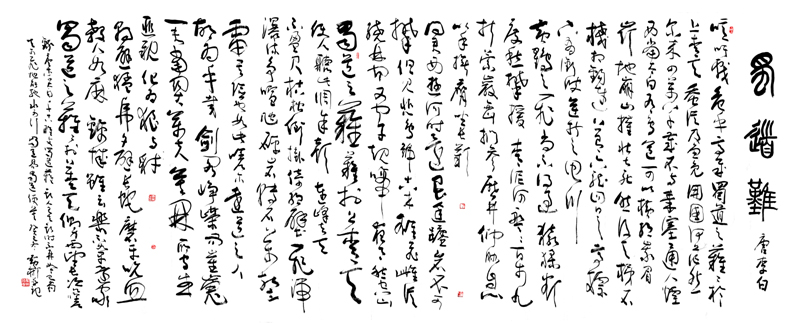 蜀道難
唐李白
噫吁嚱危乎高哉蜀道之難難於
上青天蚕叢及魚鳧開國何茫然
尔来四萬八千歲不與秦塞通人煙
西當太白有鳥道可以橫絕峨眉
巔地崩山摧壯士死然後天梯石
棧相鉤連上有六龍回日之高標
下有衝波逆折之回川
黃鶴之飛尚不得過猿猱欲
度愁攀援青泥何盤盤百步九
折縈巖巒捫參歷井仰脅息
以手撫膺坐長歎
問君西遊何時還畏途巉岩不可
攀但見悲鳥號古木雄飛雌從
繞林間又聞子規啼夜月愁空山
蜀道之難難於上青天
使人聽此凋朱顏連峰去天
不盈尺枯松倒掛倚絕壁飛湍
瀑流爭喧豗砯崖轉石萬壑
雷其險也如此嗟爾遠道之人
胡為乎來哉劍閣崢嶸而崔嵬
一夫當關萬夫莫開所守或
匪親化為狼與豺
朝避猛虎夕避長蛇磨牙吮血
殺人如麻錦城雖云樂不如早還家
蜀道之難難於上青天側身西望長咨嗟